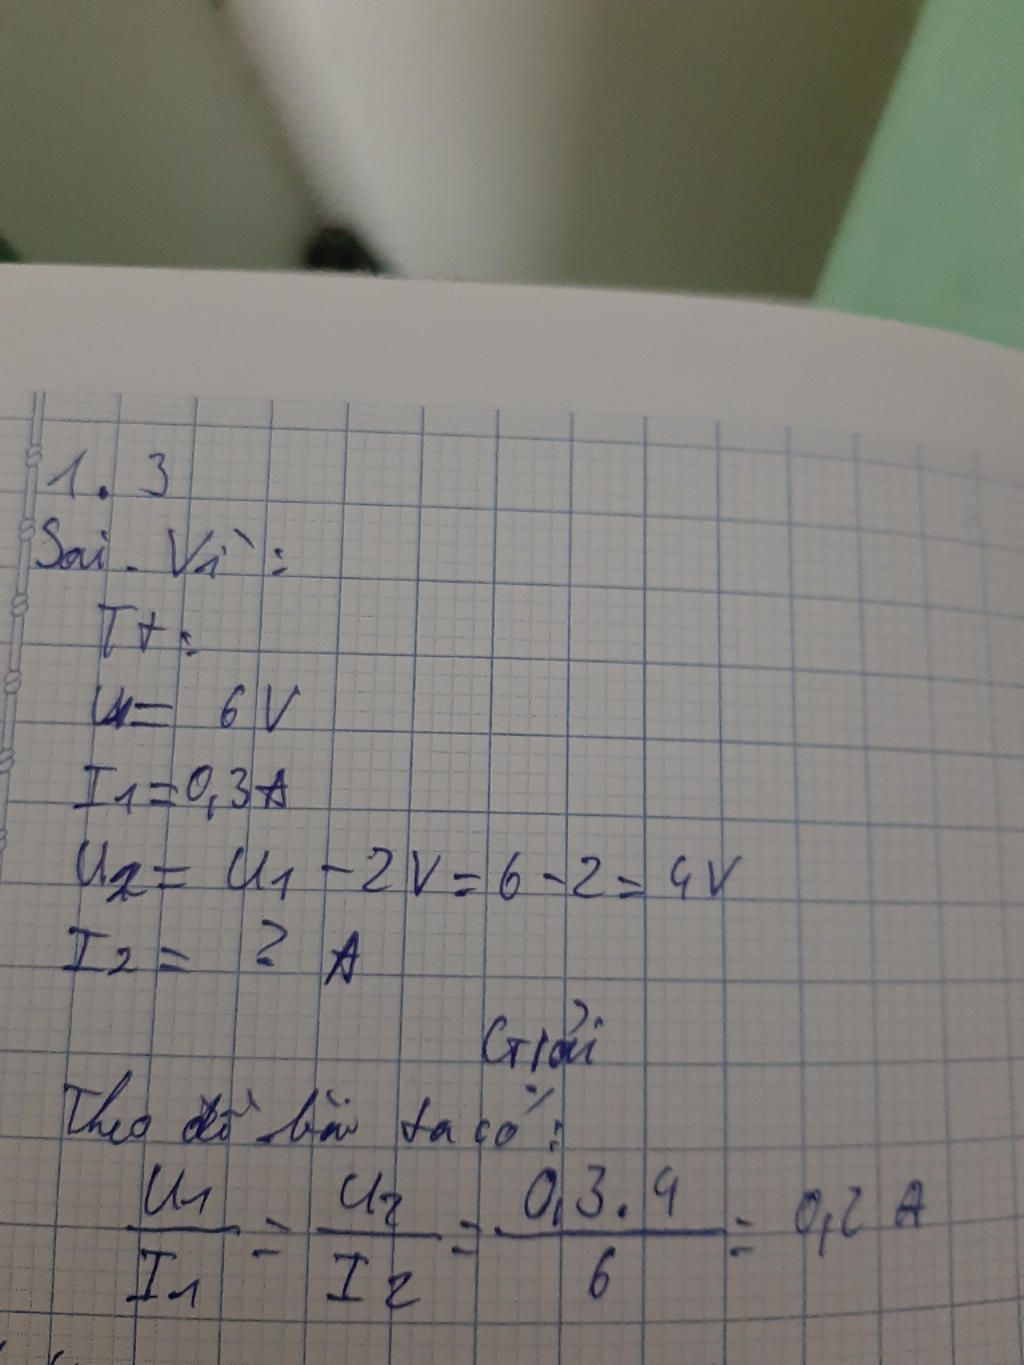 1. 3
Sai. Vì:
Tt:
U1= 6 V
I1=0,3A
U2= U1 -2V=6-2=4V
I2= ? A
Giải
Theo đề bài ta có:
U1/I1 = U2/I2 = 0,3.4/6 = 0,2 A